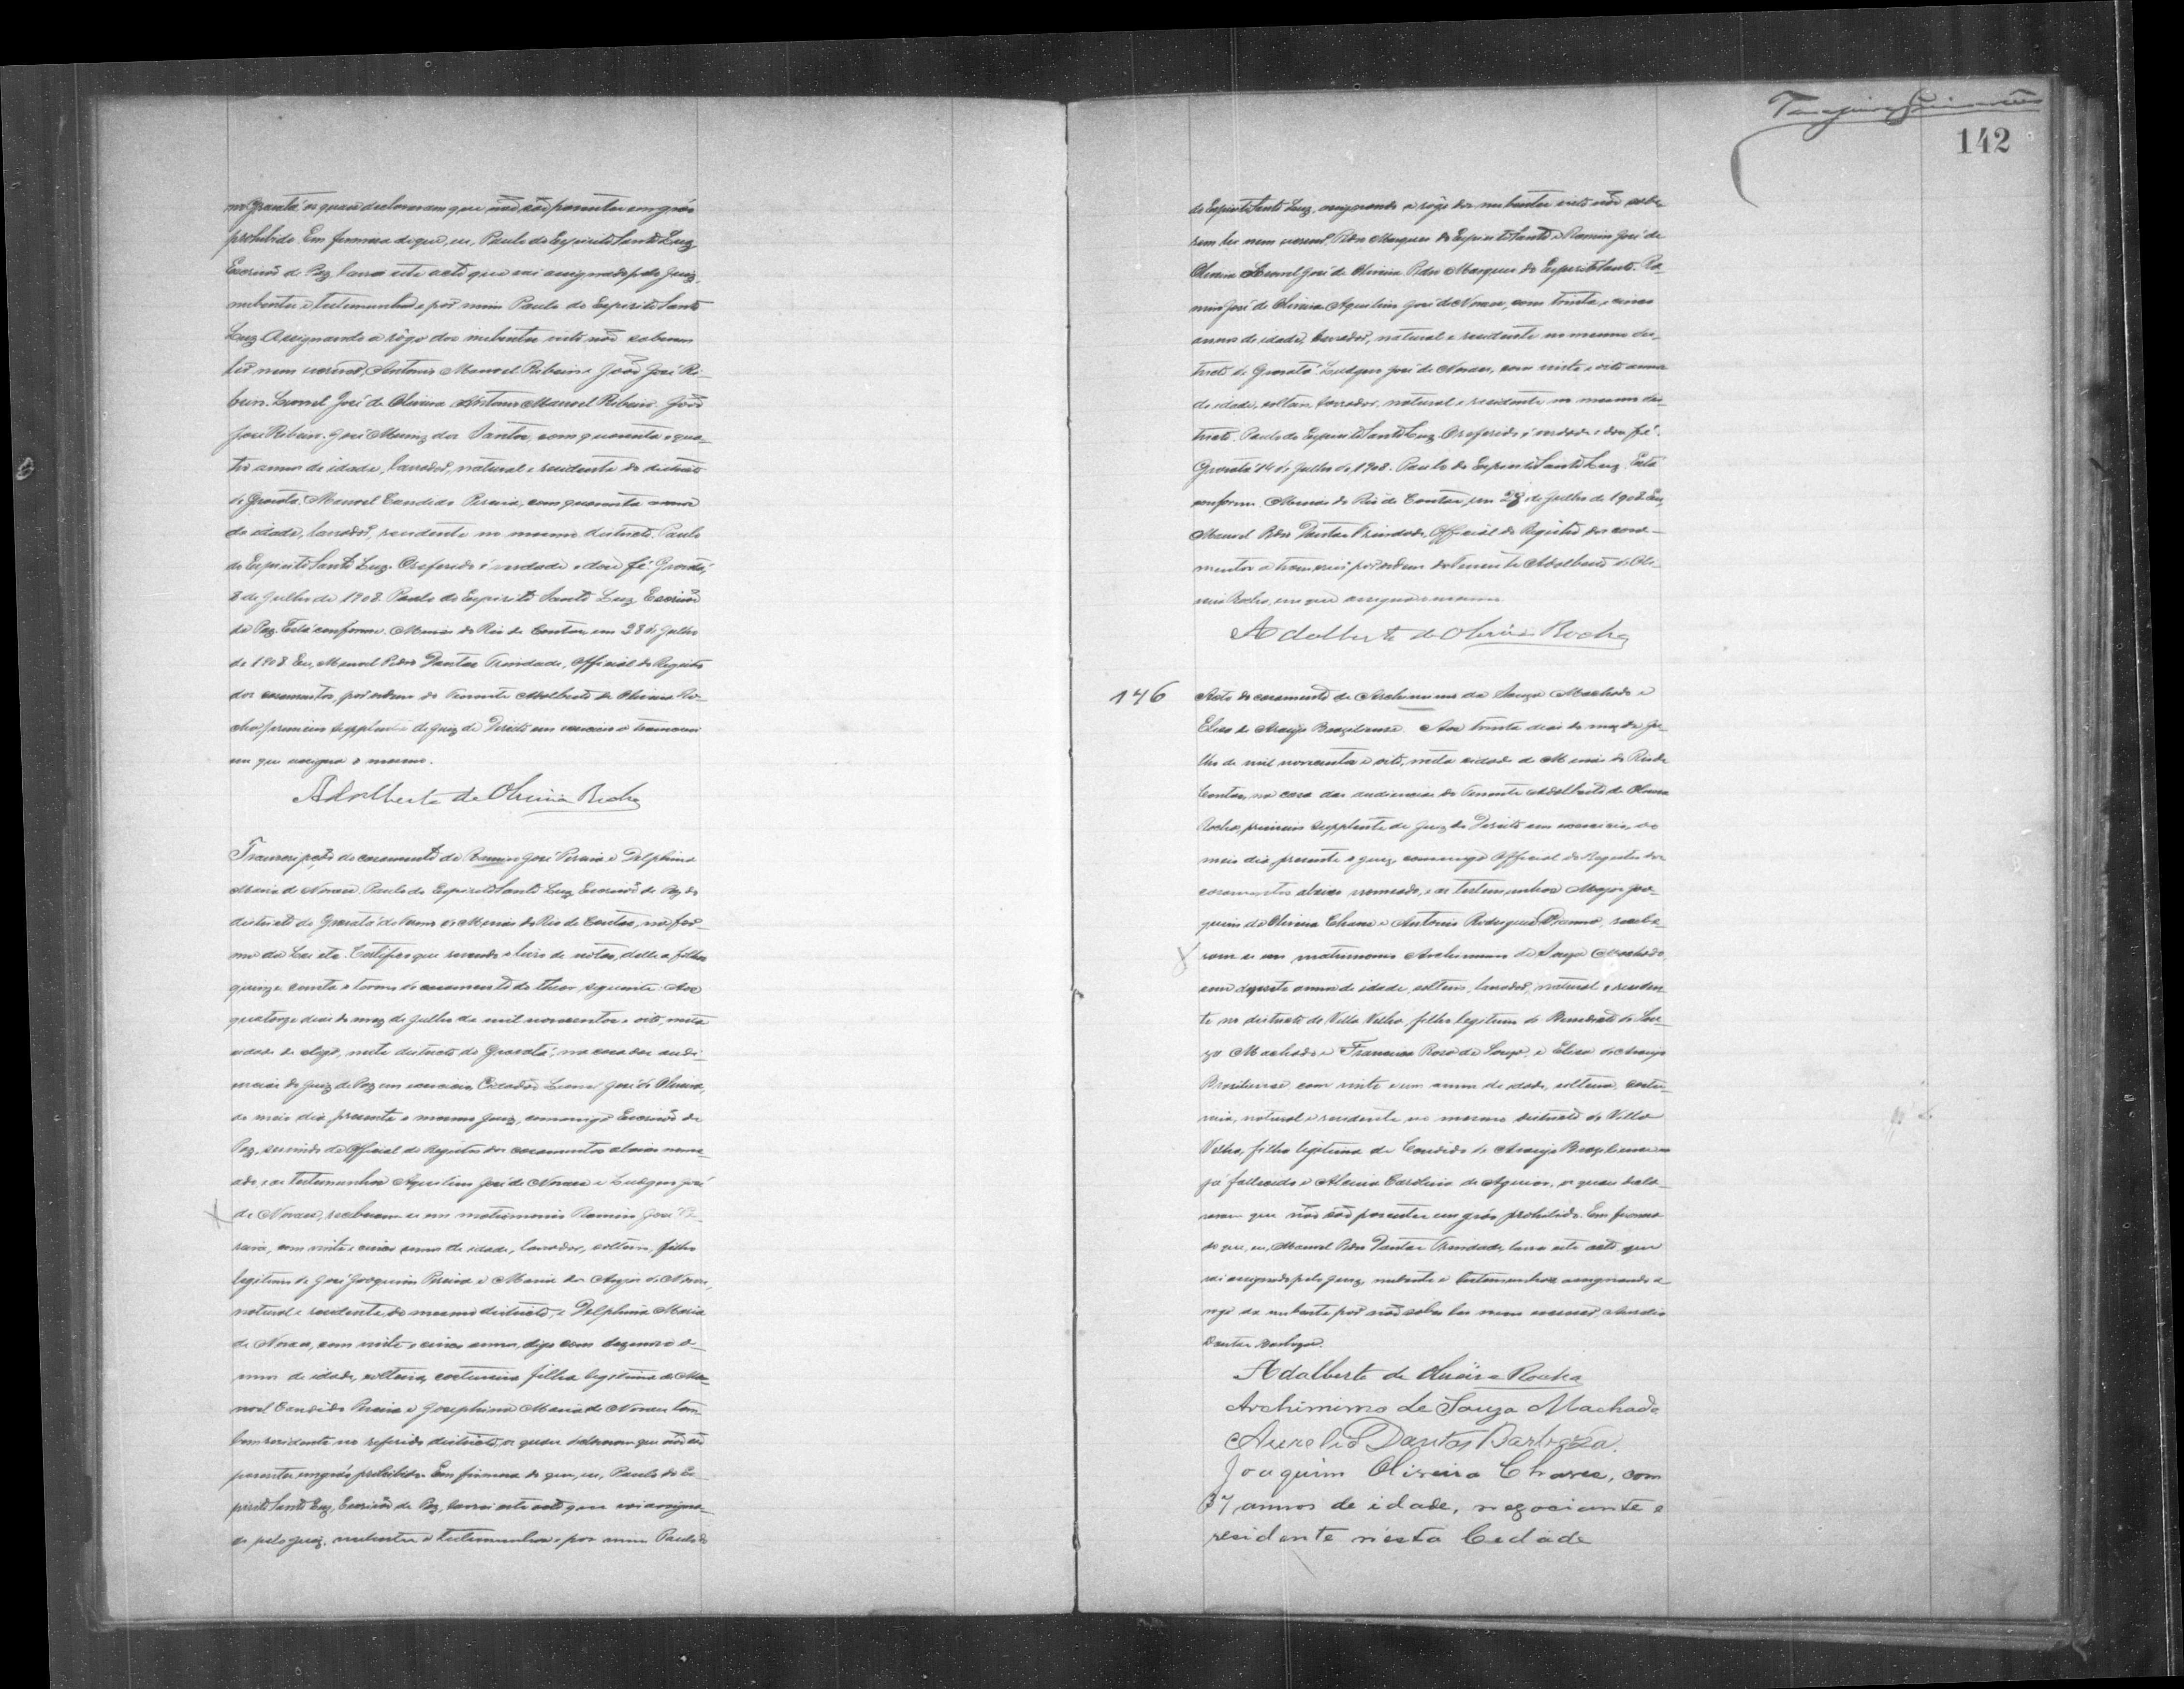 no Gravatá os quaes declararam que não são parentes em gráo
prohibido. Em firmeza do que, eu, Paulo do Espirito Santo Luz
Escrivão de Paz, lavrei este acto que vai assignado pelo Juiz,
nubentes e testemunhas e por mim Paulo do Espirito Santo
Luz. Assignando a rôgo dos nubentes visto não saberem
ler nem escrever, Antonio Manoel Ribeiro e João José Ri-
beiro. Leonel José de Oliveira. Antonio Manoel Ribeiro. João
José Ribeiro. José Muniz dos Santos, com quarenta e qua-
tro annos de idade, lavrador, natural e residente do districto
de Gravatá. Manoel Candido Pereira, com quarenta annos
de idade, lavrador, residente no mesmo districto. Paulo
do Espirito Santo Luz. O referido é verdade e dou fé. Gravatá,
8 de Julho de 1908. Paulo do Espirito Santo Luz Escrivão
de Paz. Está conforme. Minas do Rio de Contas, em 28 de Julho
de 1908. Eu, Manoel Pedro Dantas Trindade, Official do Registro
dos casamentos, por ordem do Tenente Adalberto de Oliveira Ro-
cha, primeiro supplente de Juiz de Direito em exercicio o transcrevi
em que assigna o mesmo.
Adalberto de Oliveira Rocha
Transcripção do casamento de Ramiro José Pereira e Delphina
Maria de Novaes. Paulo do Espirito Santo Luz, Escrivão de Paz do
districto de Gravatá do Termo de Minas do Rio de Contas, na for-
ma da Lei etc. Certifico que revendo o livro de notas, delle a folhas
quinze consta o termo de casamento do theor seguinte: Aos
quatorze dias do mez de Julho de mil novecentos e oito, nesta
cidade digo, neste districto de Gravatá, na casa das audi-
encias do Juiz de Paz em exercicio Cidadão Leonel José de Oliveira,
ao meio dia, presente o mesmo Juiz, commigo Escrivão de
Paz, servindo de Official do Registro dos casamentos abaixo nome-
ado, e as testemunhas Aquilino José de Novaes e Ludgero José
de Novaes, receberam-se em matrimonio Ramiro José Pe-
reira, com vinte e cinco annos de idade, lavrador, solteiro, filho
legitimo de José Joaquim Pereira e Maria dos Anjos de Novaes,
natural e residente do mesmo districto, e Delphina Maria
de Novaes, com vinte e cinco annos, digo com dezenove a-
nnos de idade, solteira, costureira filha legitima de Ma-
noel Candido Pereira e Josephina Maria de Novaes tam-
bem residente no referido districto, os quaes declararam que não são
parentes em gráo prohibido. Em firmeza do que, eu, Paulo do Es-
pirito Santo Luz, Escrivão de Paz, lavrei este acto que vai assigna-
do pelo Juiz, nubentes e testemunhas e por mim Paulo do
142
do Espirito Santo Luz, assignando a rôgo dos nubentes visto não sabe-
rem ler nem escrever, Pedro Marques do Espirito Santo e Ramiro José de
Oliveira. Leonel José de Oliveira. Pedro Marques do Espirito Santo. Ra-
miro José de Oliveira. Aquilino José de Novaes, com trinta e cinco
annos de idade, lavrador, natural e residente no mesmo dis-
tricto de Gravatá. Ludgero José de Novaes, com vinte e oito annos
de idade, solteiro, lavrador, natural e residente no mesmo dis-
tricto. Paulo do Espirito Santo Luz. O referido é verdade e dou fé.
Gravatá 14 de Julho de 1908. Paulo do Espirito Santo Luz. Está
conforme. Minas do Rio de Contas, em 28 de Julho de 1908. Eu,
Manoel Pedro Dantas Trindade, Official do Registro dos casa-
mentos o transcrevi por ordem do Tenente Adalberto de Oli-
veira Rocha, em que assigna o mesmo
Adalberto de Oliveira Rocha
146
Acto do casamento de Archimimo de Souza Machado e
Elisa de Araujo Brasiliense. Aos trinta dias do mez de Ju-
lho de mil novecentos e oito, nesta cidade de Minas do Rio de
Contas, na casa das audiencias do Tenente Adalberto de Oliveira
Rocha, primeiro supplente de Juiz de Direito em exercicio, ao
meio dia, presente o Juiz, commigo Official do Registro dos
casamentos abaixo nomeado, e as testemunhas Major Joa-
quim de Oliveira Chaves e Antonio Rodrigues, recebe-
ram-se em matrimonio Archimimo de Souza Machado,
com dezesete annos de idade, solteiro, lavrador, natural e residen-
te no districto de Villa Velha, filho legitimo de Benedicto de Sou-
za Machado e Francisca Rosa de Souza, e Elisa de Araujo
Brasiliense com vinte e um annos de idade, solteira, costu-
reira, natural e residente no mesmo districto de Villa
Velha, filha legitima de Candido de Araujo Brasiliense
já fallecido e Carolina de Aguiar, os quaes decla-
raram que não são parentes em gráo prohibido. Em firmeza
do que, eu, Manoel Pedro Dantas Trindade, lavrei este acto que
vai assignado pelo Juiz, nubente e testemunhas assignando a
rogo da nubente por não saber ler nem escrever, Aurelio
Dantas Barboza.
Adalberto de Oliveira Rocha
Archimimo de Souza Machado
Aurelio Dantas Barboza.
Joaquim Oliveira Chaves, com
37 annos de idade, negociante e
residente nésta Cidade